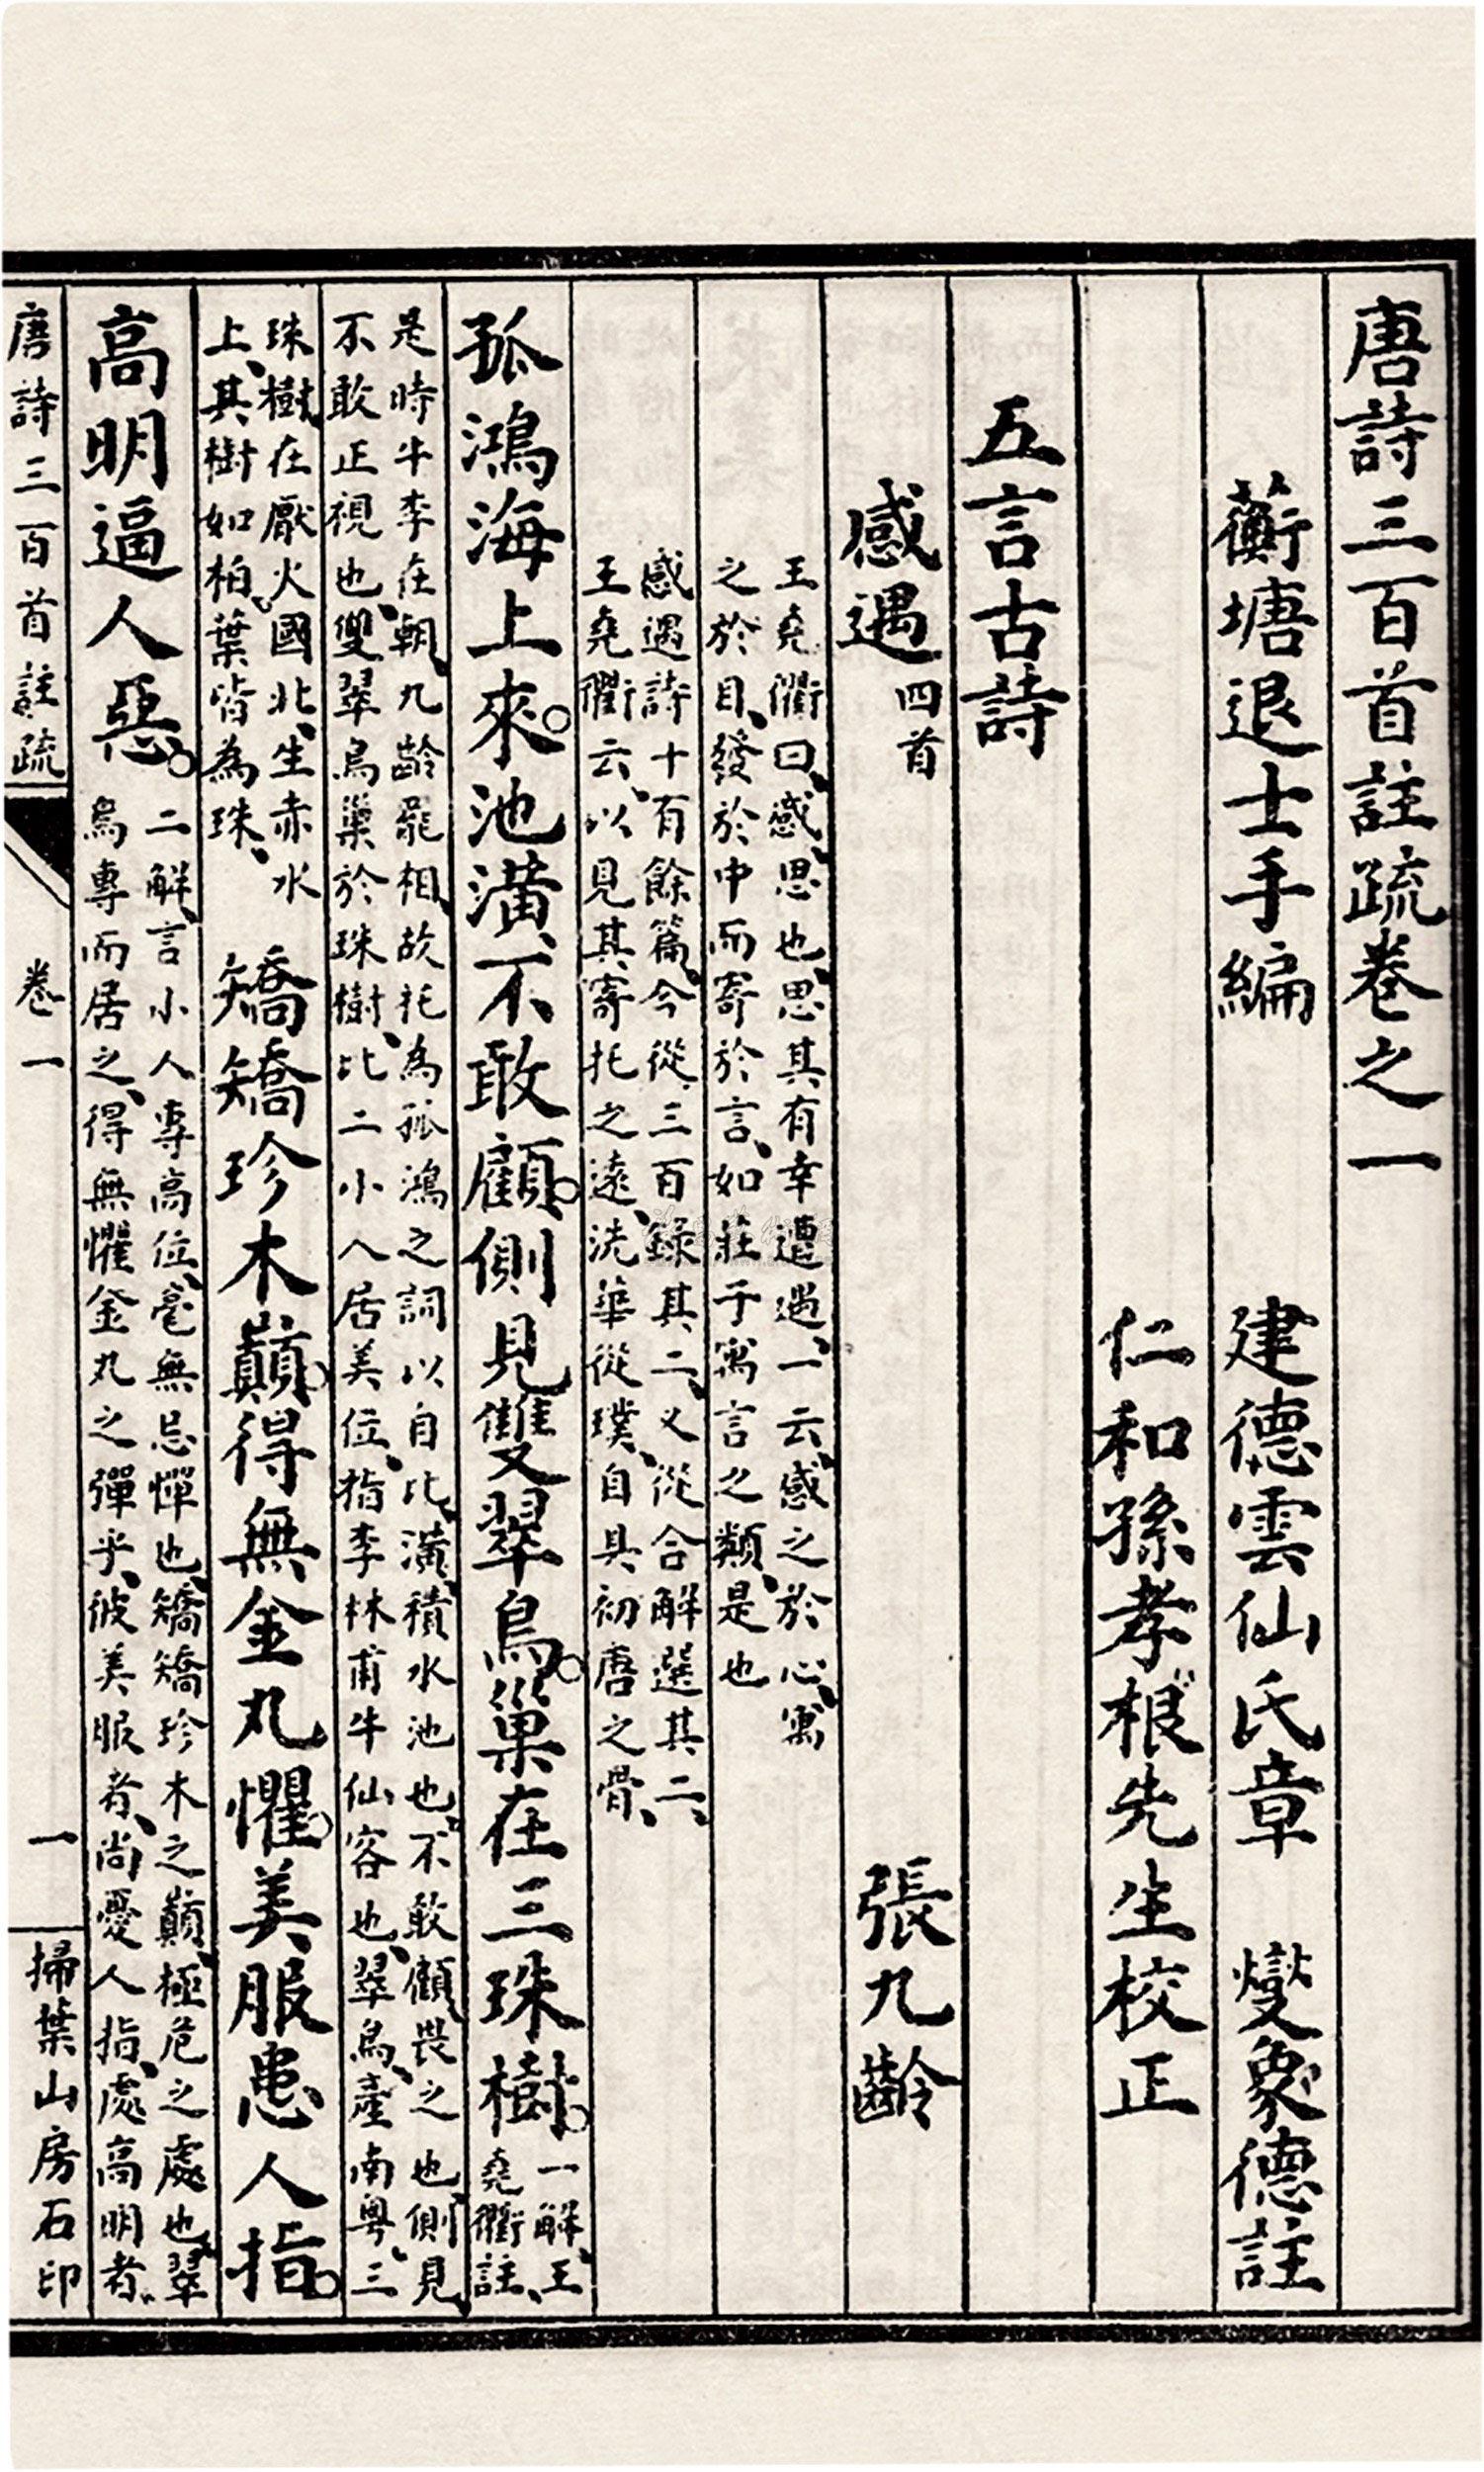 唐詩三百首註疏卷之一
蘅塘退士手編　建德雲仙氏章　燮象德註
仁和孫孝根先生校正
五言古詩
感遇四首　張九齡
王堯衢曰、感、思也、思其有幸遭遇、一云、感之於心、寓
之於目、發於中而寄於言、如莊子寓言之類、是也
感遇詩十有餘篇、今從三百錄其二、又從合解選其二、
王堯衢云、以見其寄托之遠、洗華從璞、自具初唐之骨、
孤鴻海上來。池潢、不敢顧。側見雙翠鳥。巢在三珠樹。一解、王
堯衢註、
是時牛李在朝、九齡罷相、故托為孤鴻之詞以自比、潢、積水池也、不敢顧、畏之也、側見、
不敢正視也、雙翠鳥巢於珠樹、比二小人居美位、指李林甫牛仙客也、翠鳥、產南粵、三
珠樹、在厭火國北、生赤水
上、其樹如柏、葉皆為珠、
矯矯珍木巔。得無金丸懼。美服患人指。
高明逼人惡。二解、言小人專高位、毫無忌憚也、矯矯珍木之巔、極危之處也、翠
鳥專而居之、得無懼金丸之彈乎、彼美服者、尚憂人指、處高明者、
唐詩三百首註疏　卷一　一　掃葉山房石印